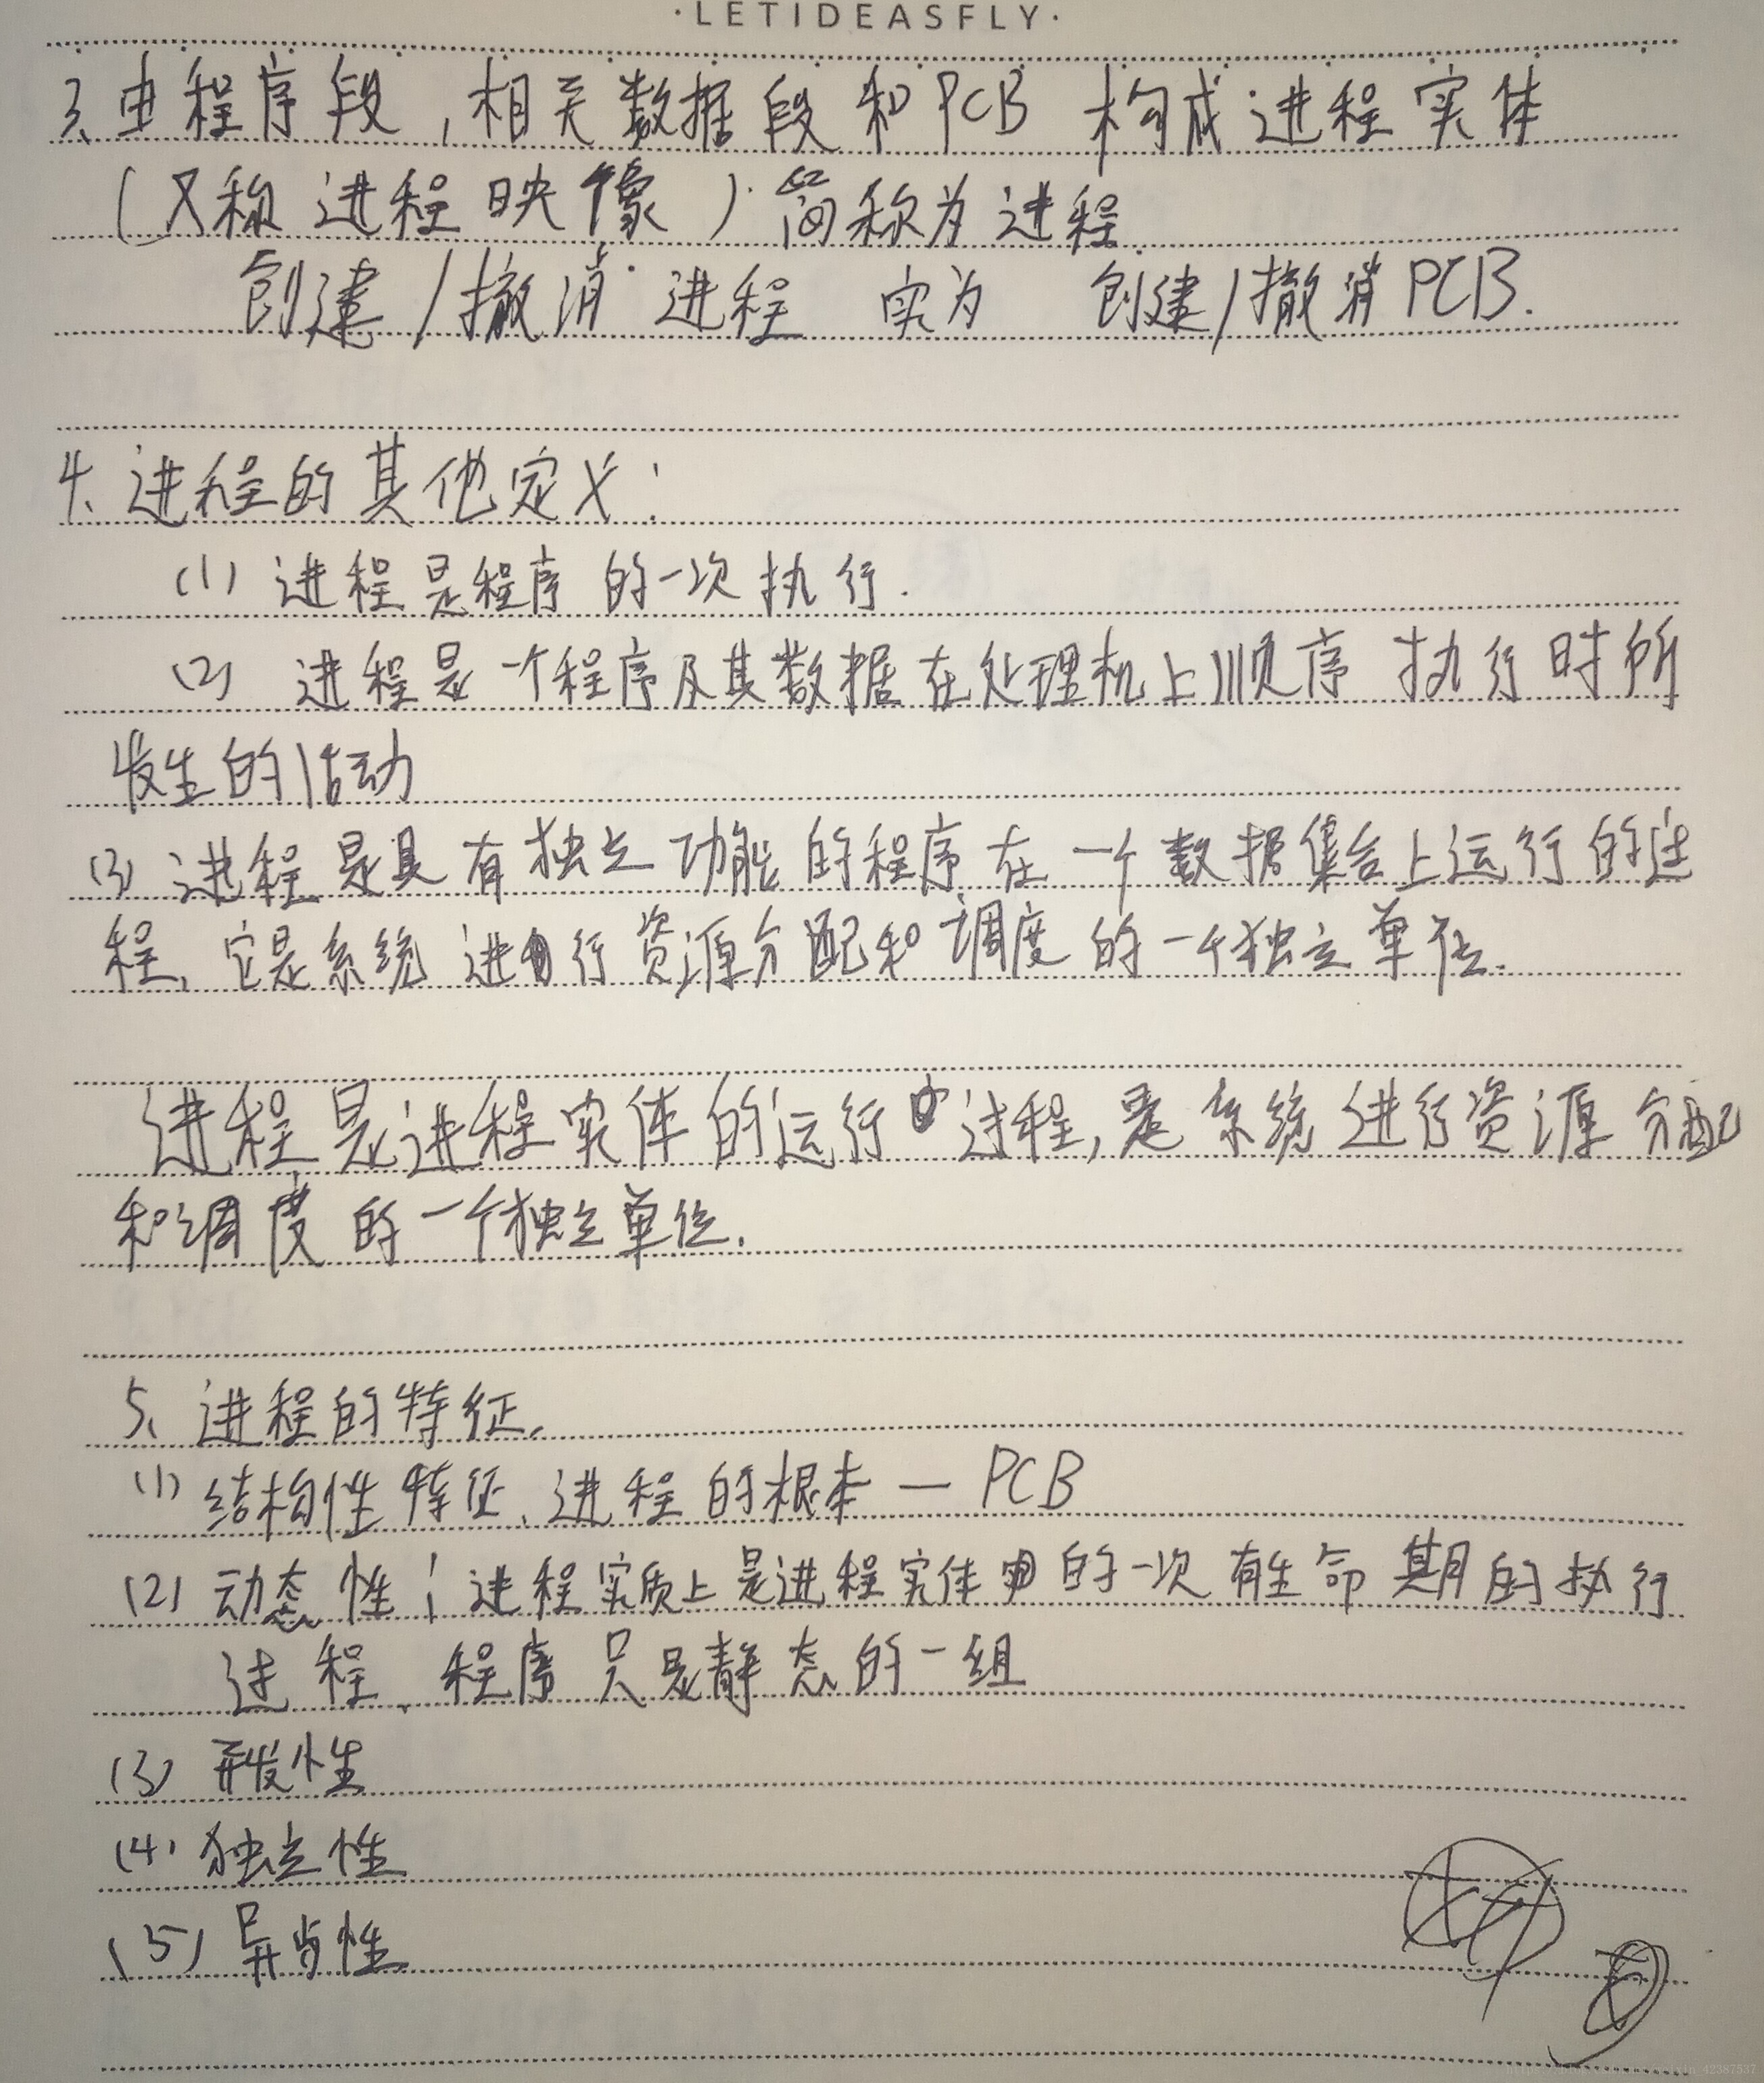 ·LETIDEASFLY·
3、由程序段，相关数据段和PCB 构成进程实体
(又称进程映像）.简称为进程.
创建/撤消 进程 实为 创建/撤消PCB.
4、进程的其他定义：
(1) 进程是程序的一次执行.
(2) 进程是一个程序及其数据在处理机上顺序执行时所
发生的活动
(3) 进程是具有独立功能的程序在一个数据集合上运行的过
程，它是系统进行资源分配和调度的一个独立单位.
进程是进程实体的运行过程，是系统进行资源分配
和调度的一个独立单位.
5、进程的特征.
(1) 结构性特征、进程的根本—PCB
(2) 动态性；进程实质上是进程实体的一次有生命期的执行
过程、程序只是静态的一组
(3) 并发性
(4) 独立性
(5) 异步性